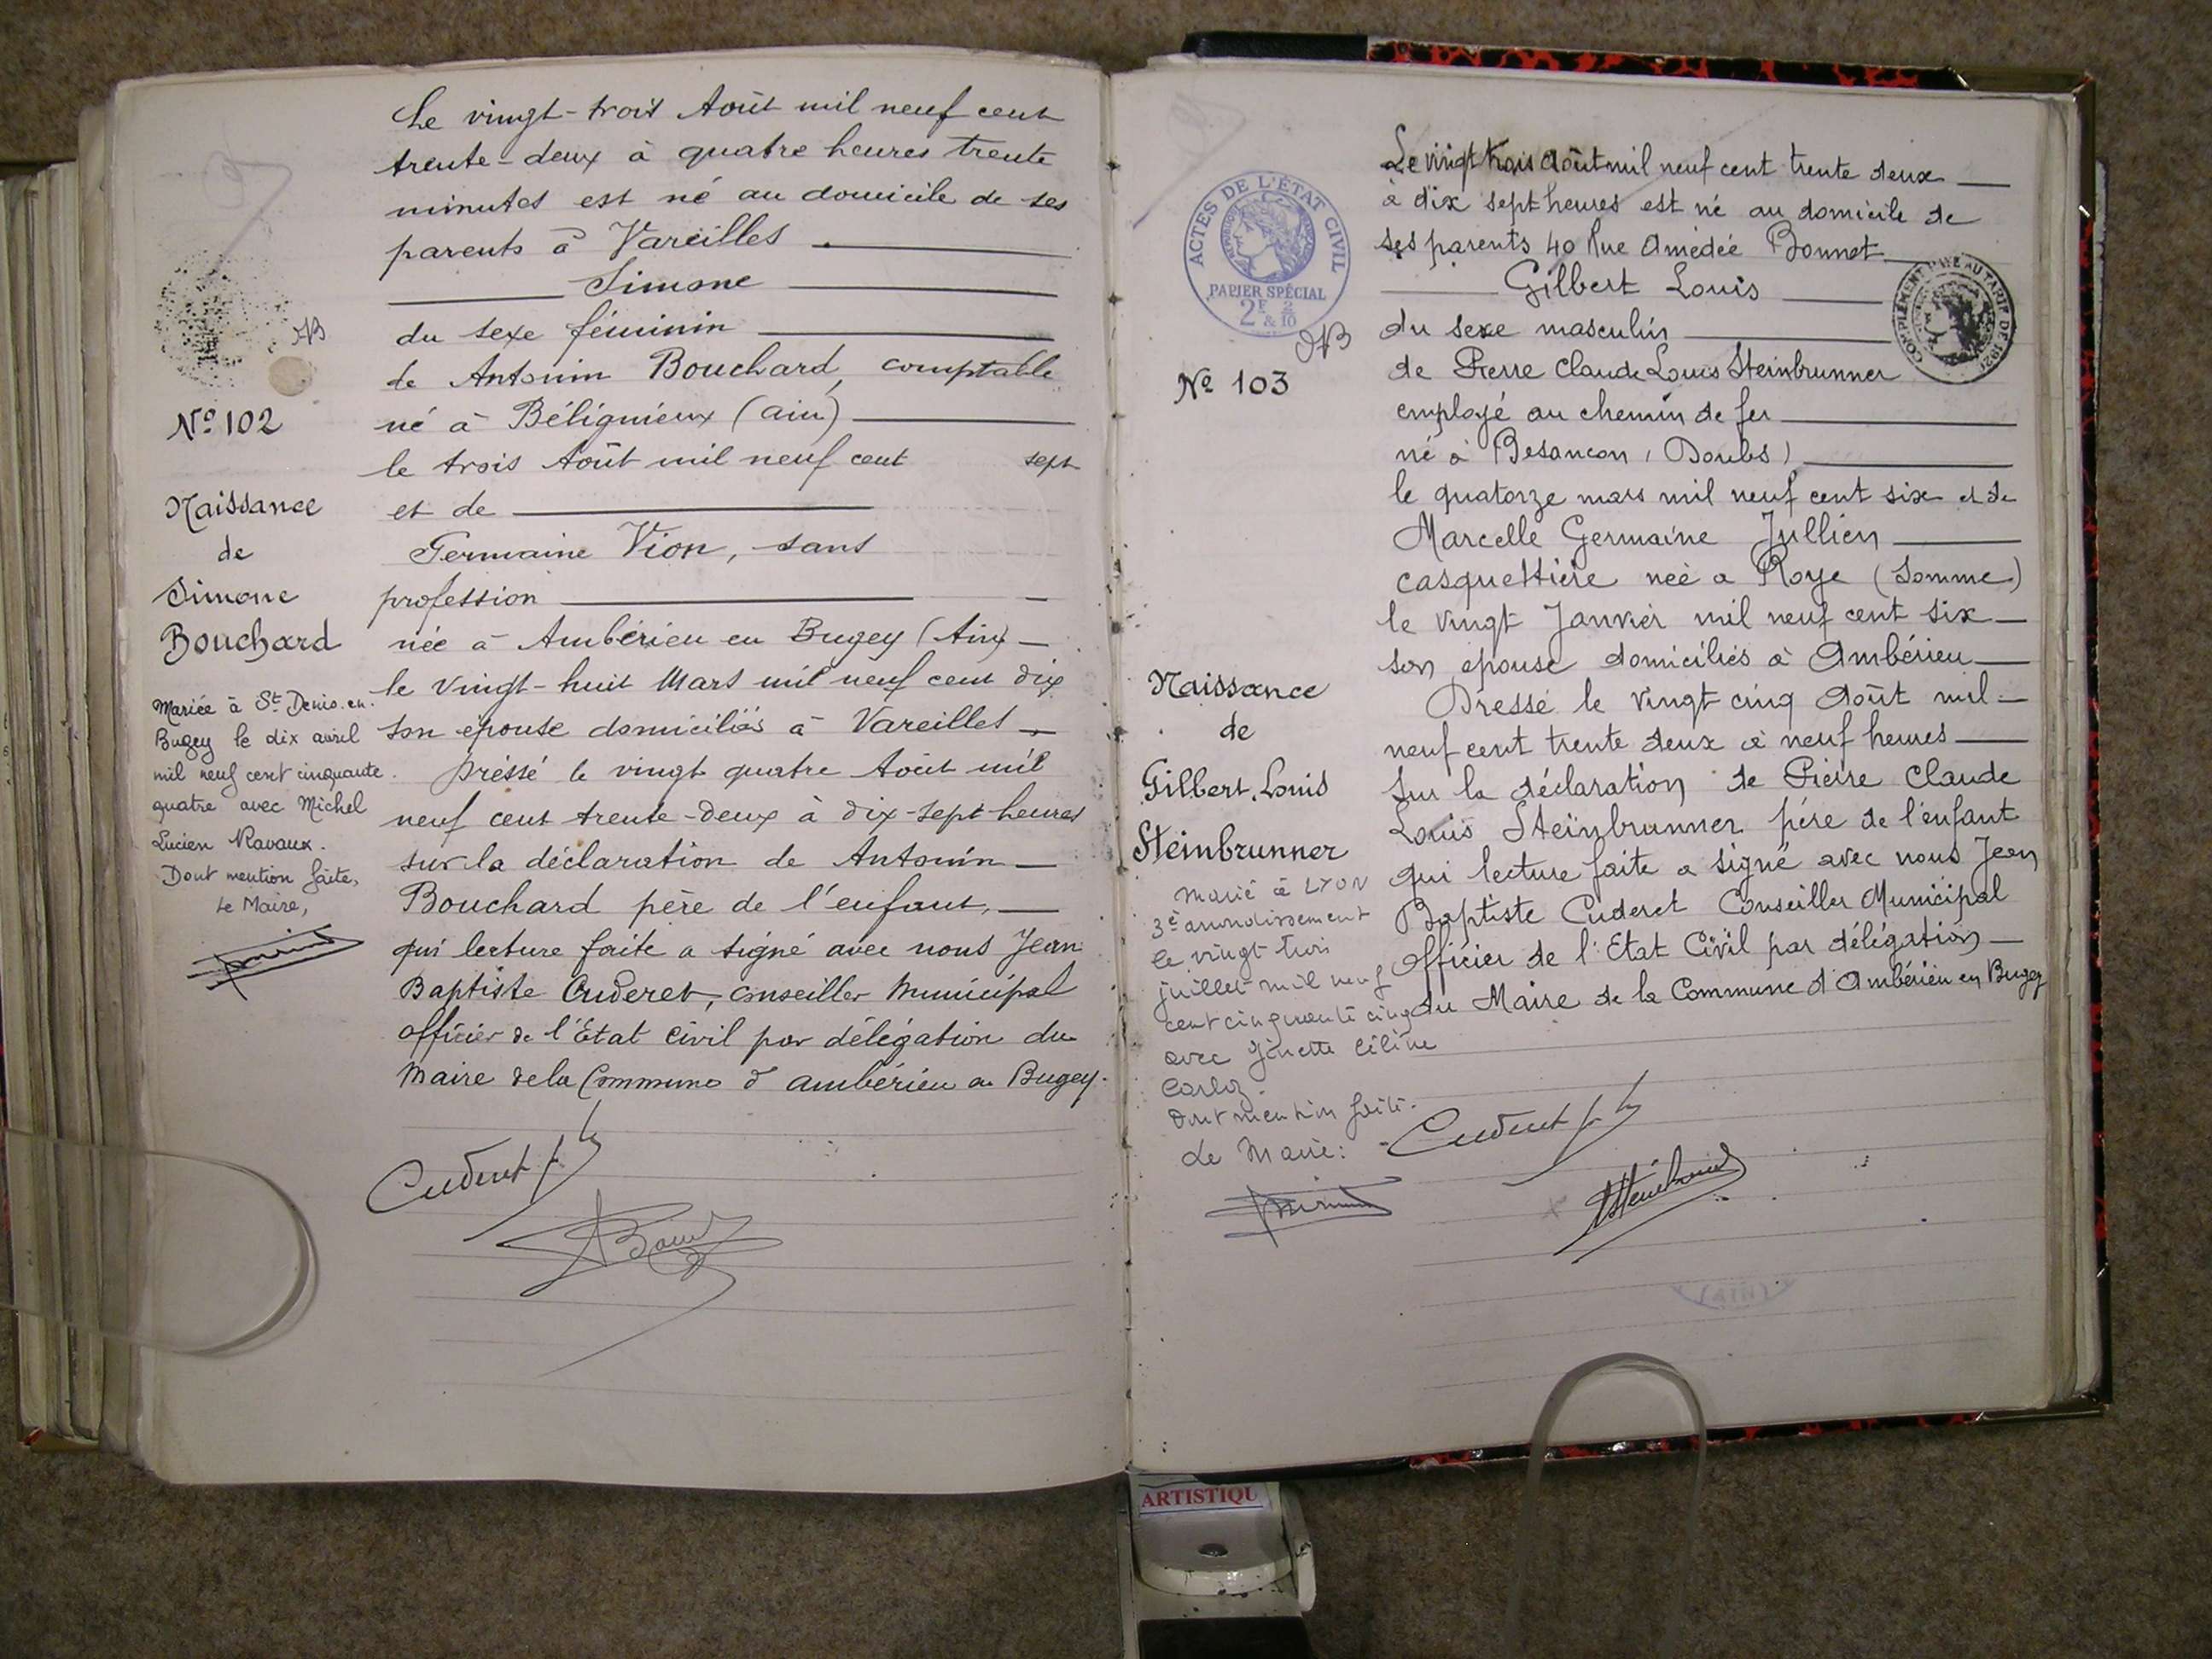 Le vingt-trois Août mil neuf cent
trente-deux à quatre heures trente
minutes est né au domicile de ses
parents à Vareilles
Simone
du sexe féminin
de Antonin Bouchard, comptable
né à Béligneux (ain)
le trois Août mil neuf cent sept
et de
Germaine Vion, sans
profession
née à Ambérieu en Bugey (Ain)
le vingt-huit Mars mil neuf cent dix
son épouse domiciliés à Vareilles
Dréssé le vingt quatre Août mil
neuf cent trente-deux à dix-sept heures
sur la déclaration de Antonin
Bouchard père de l'enfant,
qui lecture faite a signé avec nous Jean
Baptiste Cuderet, conseiller Municipal
officier de l'Etat civil par délégation du
Maire de la Commune d'ambérieu en Bugey.
Cuderet
N° 102
Naissance
de
Simone
Bouchard
Mariée à St Denis-en-
Bugey le dix avril
mil neuf cent cinquante
quatre avec Michel
Lucien Navaux.
Dont mention faite,
Le Maire,
Le vingt trois Août mil neuf cent trente deux
à dix sept heures est né au domicile de
ses parents 40 Rue Amédée Bonnet
Gilbert Louis
du sexe masculin
de Pierre Claude Louis Steinbrunner
employé au chemin de fer
né à Besancon (Doubs)
le quatorze mars mil neuf cent six et de
Marcelle Germaine Jullien
casquettière née a Roye (Somme)
le vingt Janvier mil neuf cent six
son epouse domiciliés à Ambérieu
Dressé le vingt cinq Août mil
neuf cent trente deux à neuf heures
sur la déclaration de Pierre Claude
Louis Steinbrunner père de l'enfant
qui lecture faite a signé avec nous Jean
Baptiste Cuderet Conseiller Municipal
Officier de l'Etat Civil par délégation
du Maire de la Commune d'Ambérieu en Bugey
Cuderet
ACTES DE L'ÉTAT CIVIL
PAPIER SPÉCIAL
2F & 2/10
COMPLÉMENT PAYÉ AU TARIF DE
N° 103
Naissance
de
Gilbert Louis
Steinbrunner
Marié à LYON
3e arrondissement
le vingt trois
juillet mil neuf
cent cinquante cinq
avec Ginette Céline
Dont mention faite.
Le Maire:
(AIN)
ARTISTIQU